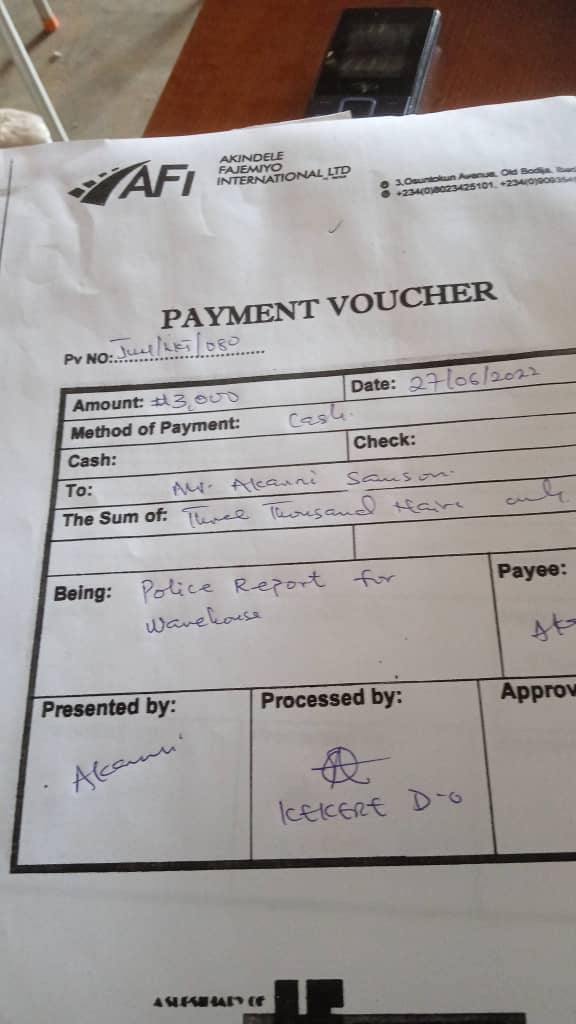 AFI
AKINDELE
FAJEMIYO
INTERNATIONAL LTD
3, Osuntokun Avenue, Old Bodija,
+234(0)8023425101, +234(0)
PAYMENT VOUCHER
Pv NO: /080
Amount: ₦3,000 Date: 27/06/2022
Method of Payment: Cash.
Cash: Check:
To: Mr. Akanni Samson.
The Sum of: Three Thousand Naira only.
Being: Police Report for
Warehouse
Payee:
Presented by: Processed by: Approv
Akanni
KEKERE D-O
A SUBSIDIARY OF